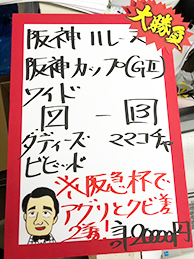 大勝負
阪神11レース
阪神カップ(GⅡ)
ワイド
13
ダディーズ ママコチャ
ビビッド
※阪急杯で
アグリとクビ差
2着!
20000円